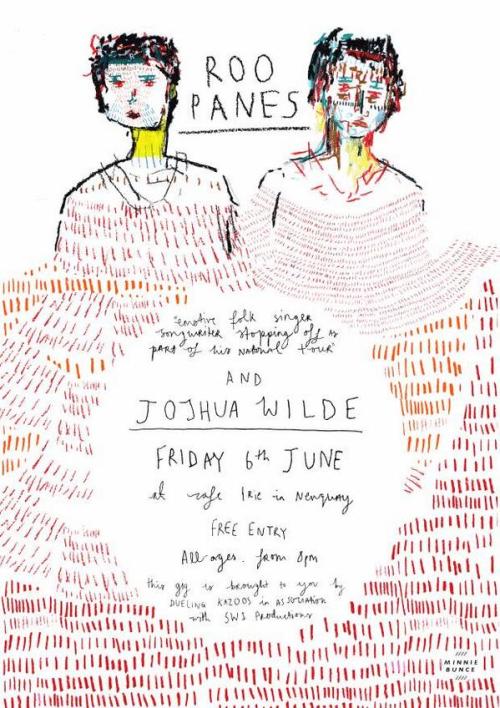 ROO
PANES
"emotive folk singer
songwriter stopping off as
part of his National tour"
AND
JOJHUA WILDE
FRIDAY 6th JUNE
at cafe Irie in Newquay
FREE ENTRY
All ages. from 8pm
this gig is brought to you by
DUELING KAZOOS in ASSOCIATION
with SWS Productions
MINNIE
BUNCE